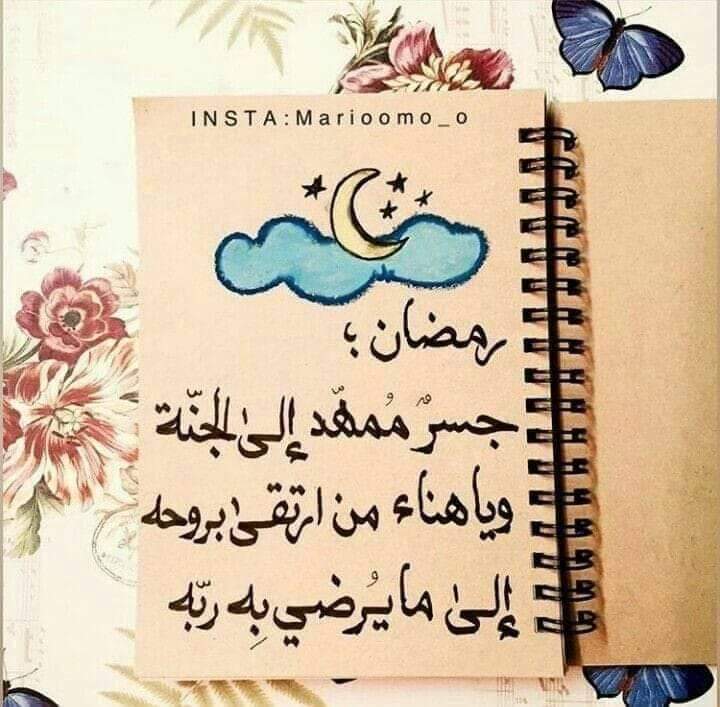 INSTA:Marioomo_o
رمضان ؛
جسرٌ مُمهّد إلىٰ الجنّة
ويا هناء من ارتقىٰ بروحه
إلىٰ ما يُرضي بِه ربّه